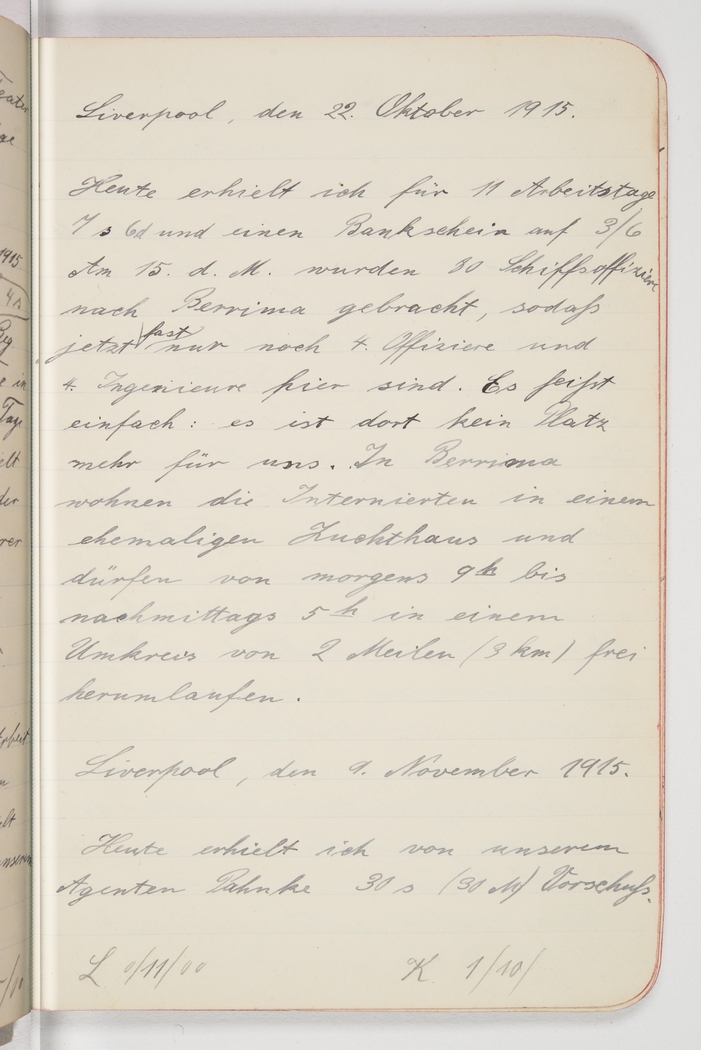 Liverpool, den 22. Oktober 1915.
Heute erhielt ich für 11 Arbeitstage
7 s 6d und einen Bankschein auf 3/6
Am 15. d. M. wurden 80 Schiffsoffiziere
nach Berrima gebracht, sodaß
jetzt fast nur noch 4. Offiziere und
4. Ingenieure hier sind. Es heißt
einfach: es ist dort kein Platz
mehr für uns. In Berrima
wohnen die Internierten in einem
ehemaligen Zuchthaus und
dürfen von morgens 9h bis
nachmittags 5h in einem
Umkreis von 2 Meilen (3 km) frei
herumlaufen.
Liverpool, den 9. November 1915.
Heute erhielt ich von unserem
Agenten Pahnke 30 s (30 M) Vorschuß.
L 0/11/00 K 1/10/